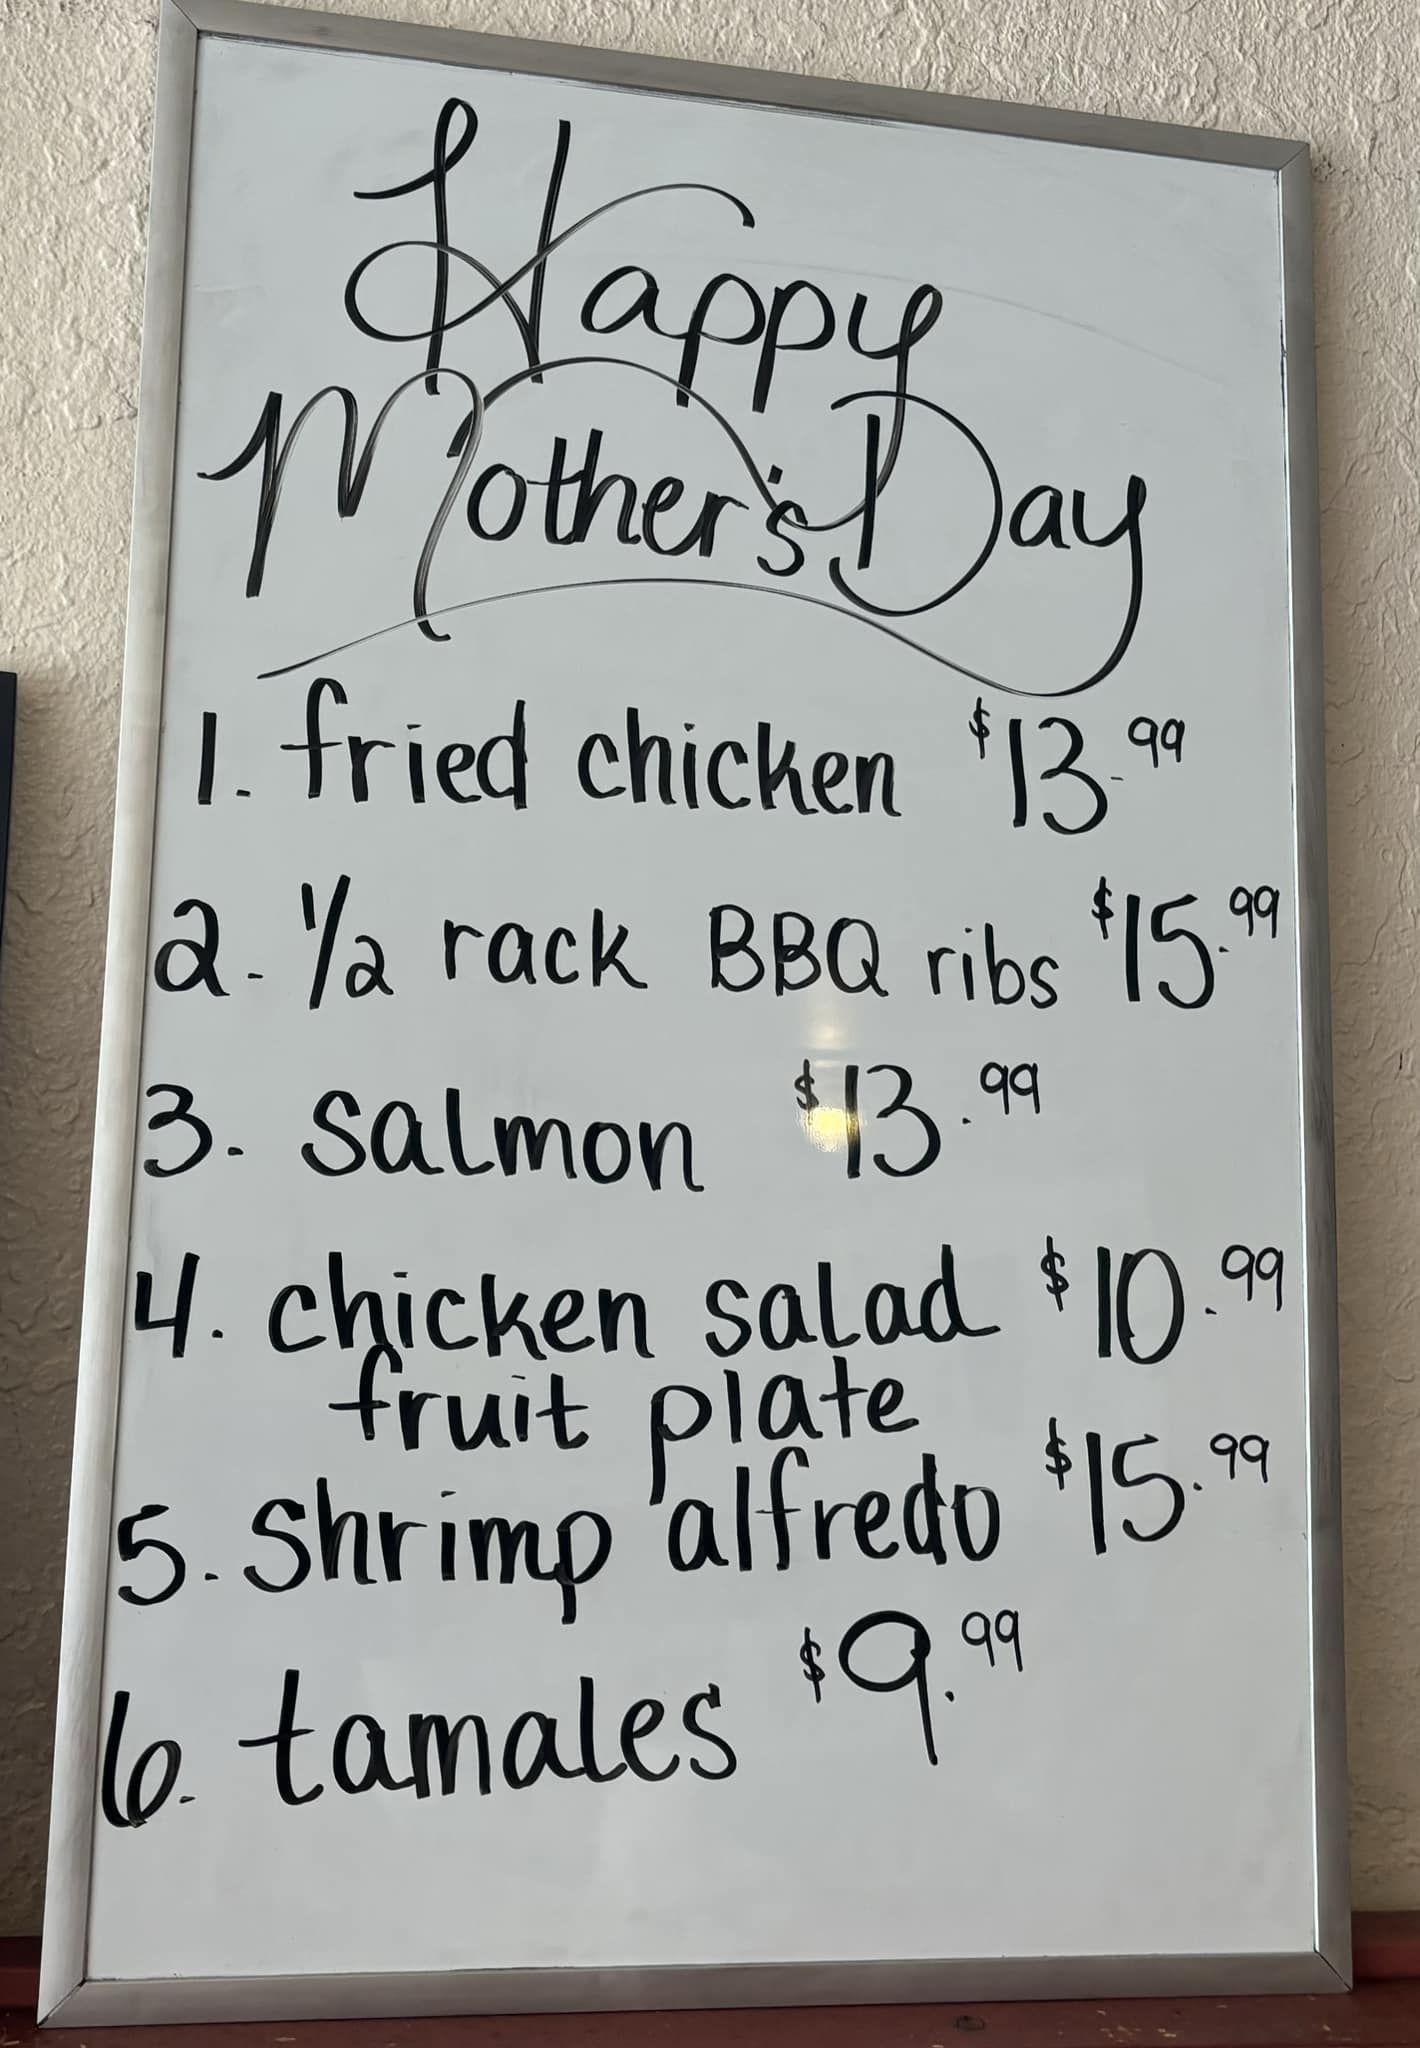 Happy
Mother's Day
1. fried chicken $13.99
2. 1/2 rack BBQ ribs $15.99
3. salmon $13.99
4. chicken salad $10.99
fruit plate
5. shrimp alfredo $15.99
6. tamales $9.99